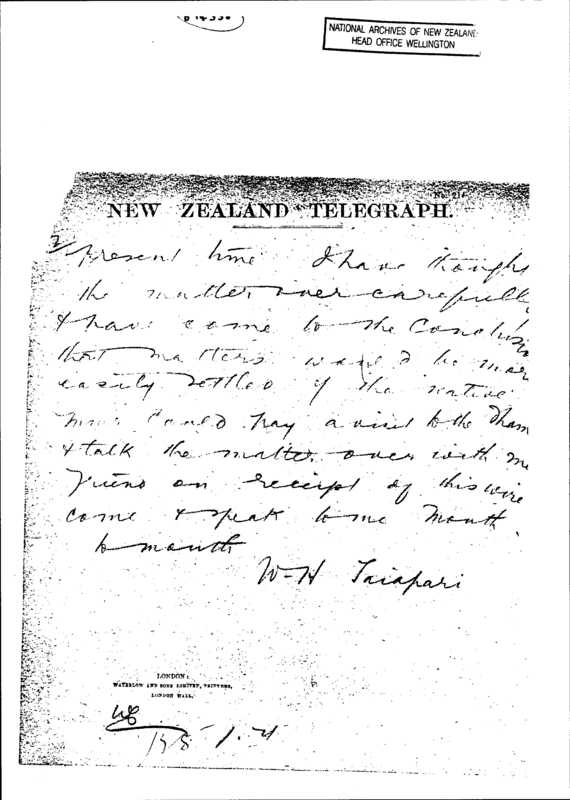 NATIONAL ARCHIVES OF NEW ZEALAND
HEAD OFFICE WELLINGTON
NEW ZEALAND TELEGRAPH.
2/ present time I have thought
the matter over carefully
& have come to the Conclusion
that matters would be more
easily settled if the native
could pay a visit to the Tham
& talk the matter over with me
Friend on receipt of this wire
come & speak to me mouth
to mouth
W-H Taiapari
LONDON:
WATERLOW AND SONS LIMITED, PRINTERS,
LONDON WALL.